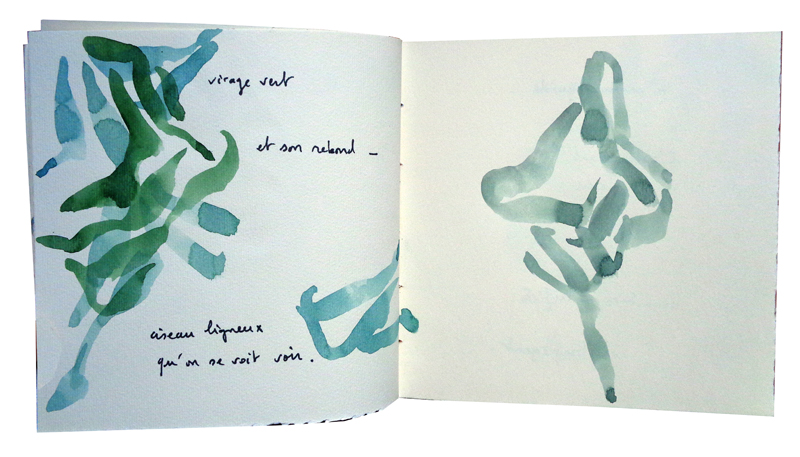 virage vert
et son rebond –
ciseau ligneux
qu'on se voit voir.